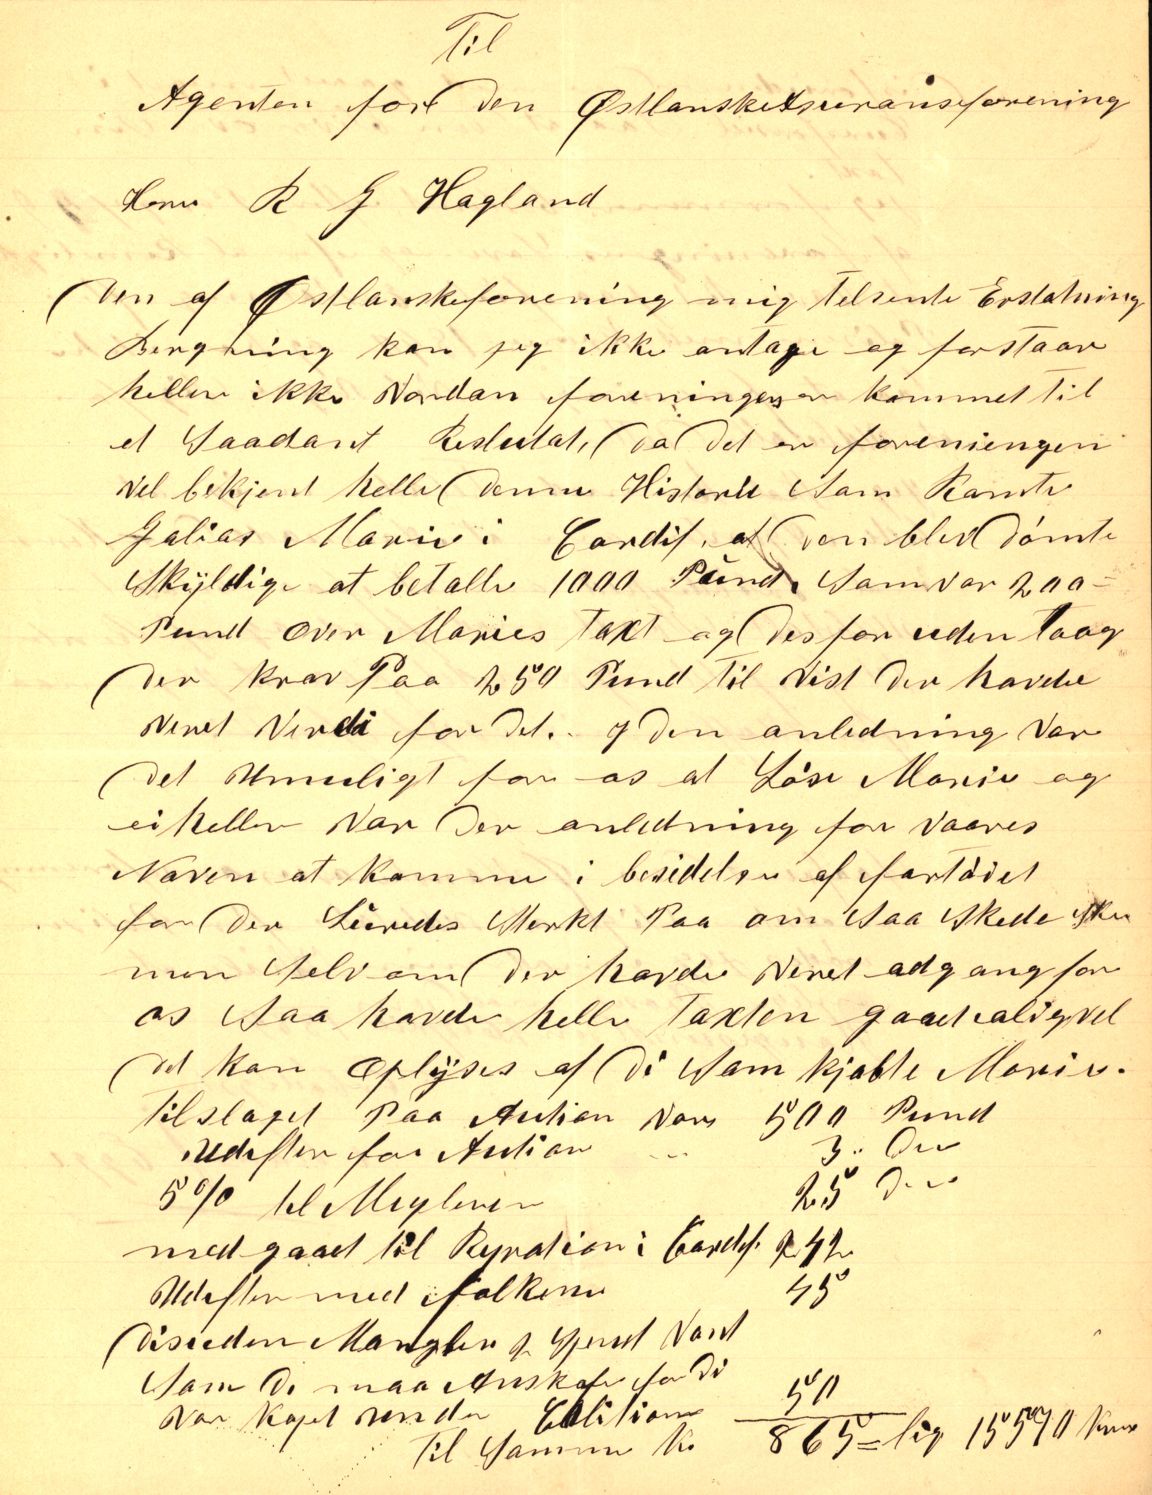 Til
Agenten for den Østlanske Asuransforening
Herr R G Hagland
Den af Østlanskeforening mig Telsente Erstatning
Bergning kan jeg ikke antage og forstaar
heller ikke Vordan foreningen er kommet til
et Saadant Reslutat, da det er foreniengen
Vel bekjent helle denne Historie Sam Ramte
Galias Marie i Cardif, at den blev dömte
Skyldige at betalle 1000 Pund, Sam var 200 =
Pund over Maries Taxt og desfor uden Taag
der krav Paa 250 Pund til Vist der havde
Veret Verdi for det. I den anledning var
det Umuligt for os at Löse Marie og
ei heller Var der anledning for vaares
Naven at komme i besidelse af fartöiet
for der Merkt Paa om Saa Skede
men Selv om der havde Veret adgang for
os Saa havde helle Taxten gaaet aligvel
det kan Oplyses af di Sam kjøbte Marie.
Tilslaget Paa Aution Var 500 Pund
Udefter for Aution " 3 " Do
5 % til Megleren 25 Do
med gaaet til Repration i Cardif. 242
Udefter med folkene 45
disuden Mangler 2 Spend Vant
Sam di maa Anskafe for di
Var kapet under Colition 50
Til Samme K. 865 = lig 15570 Kr